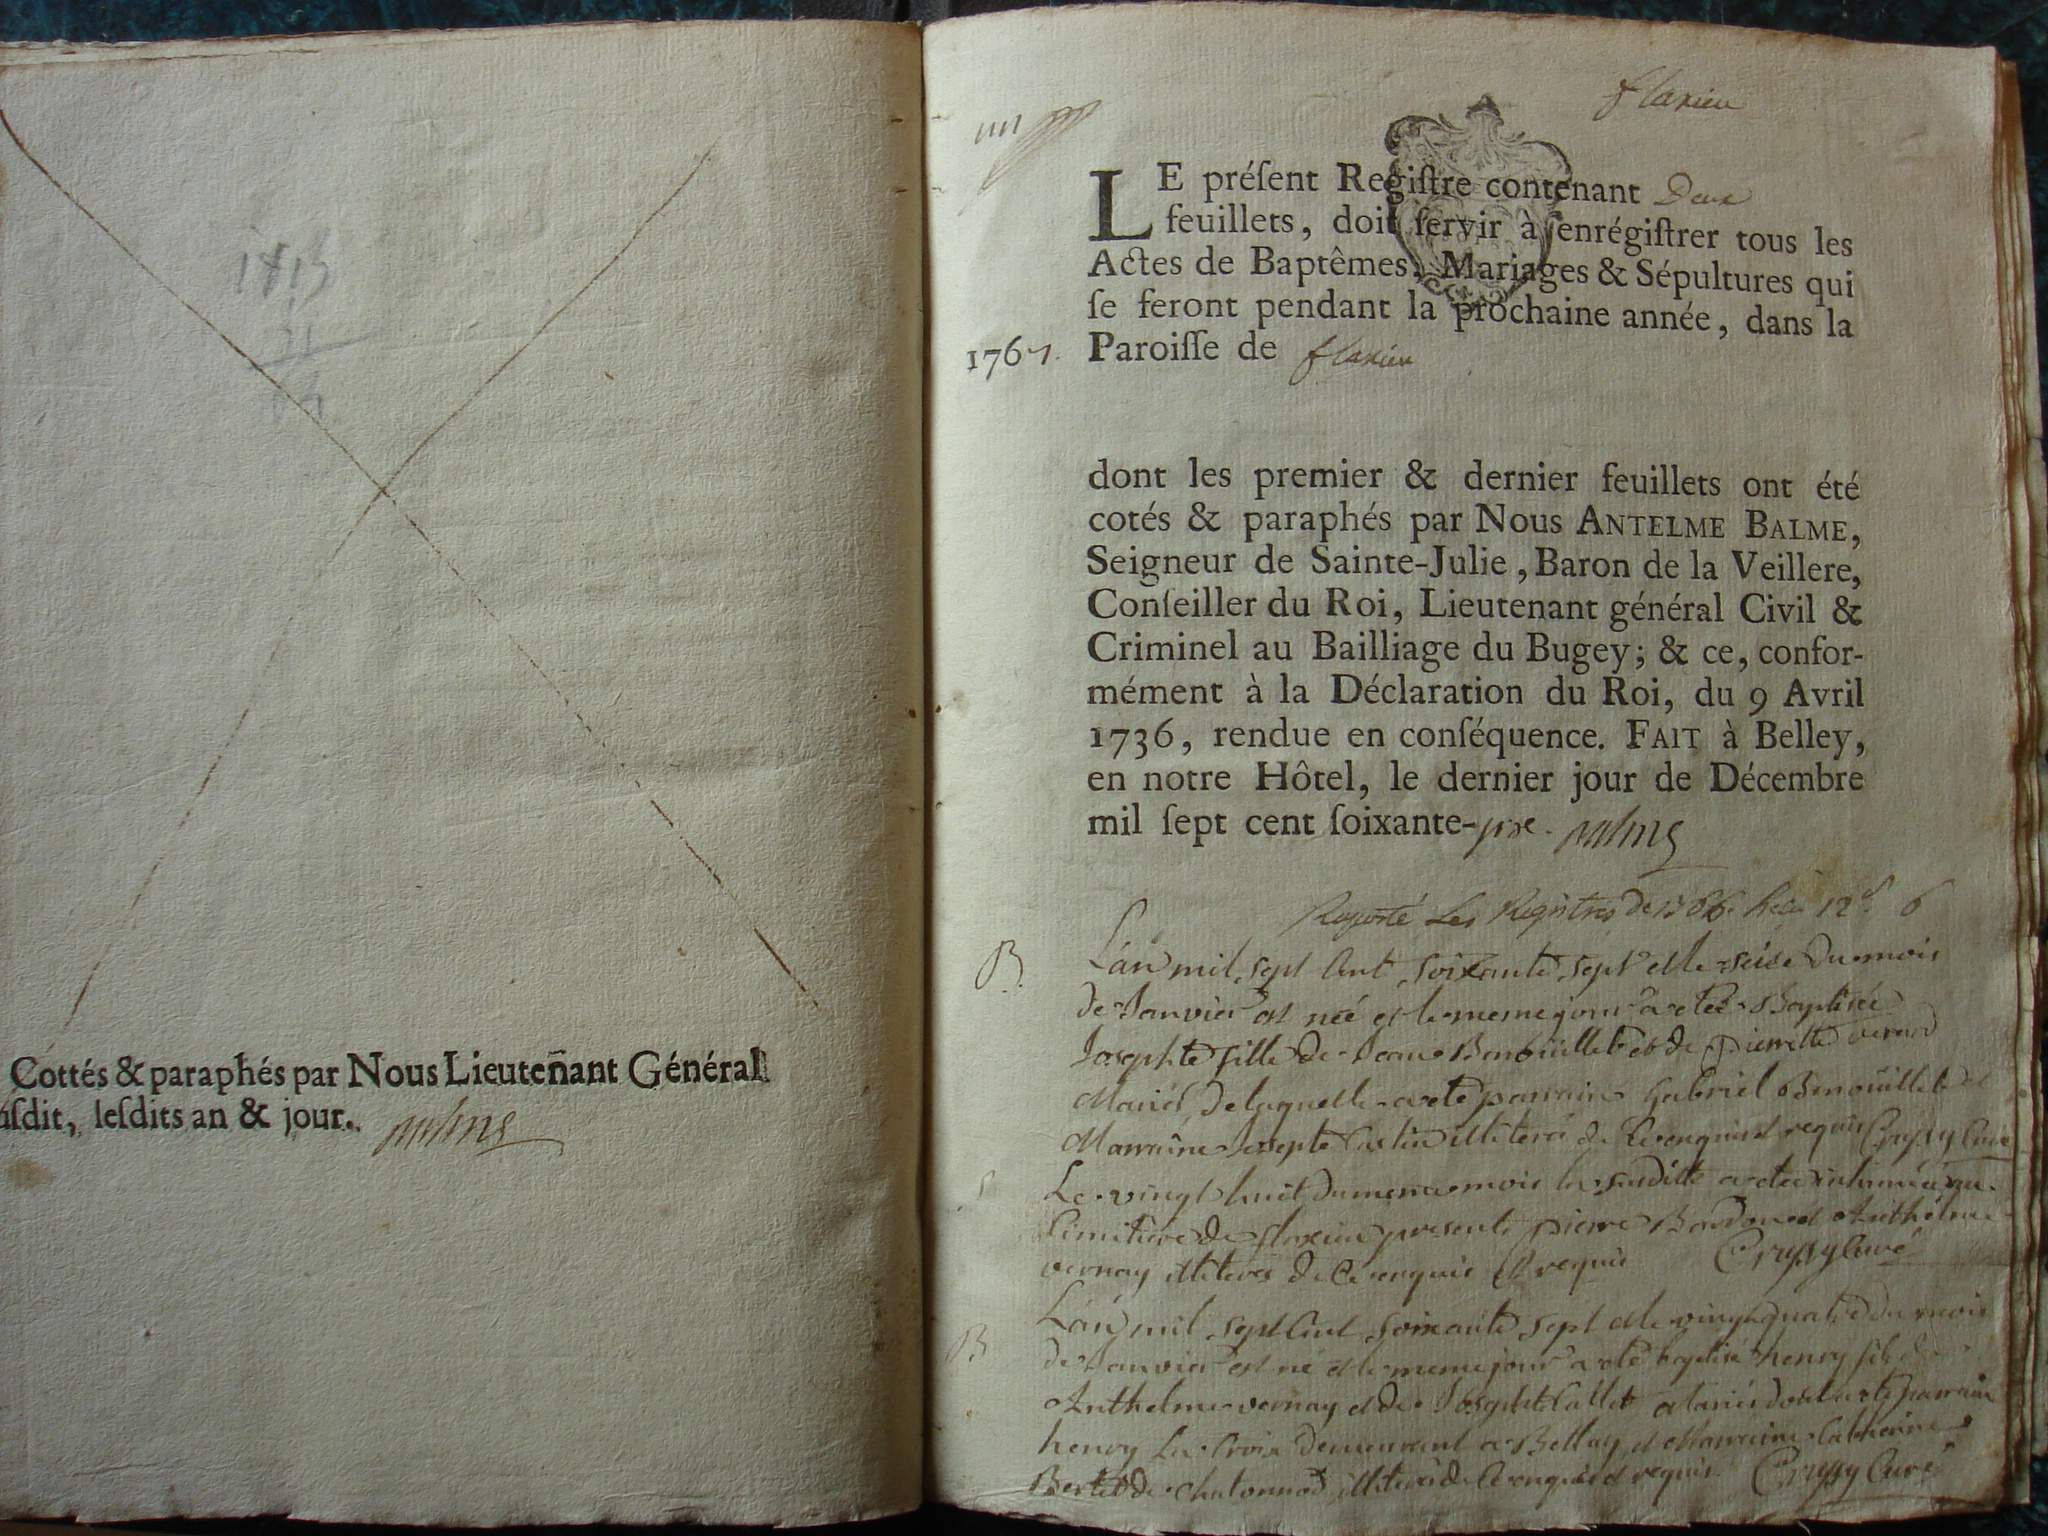 1813
21
Cottés & paraphés par Nous Lieuteñant Général
uſdit, leſdits an & jour.
flaxieu
LE préſent Regiſtre contenant Deux
feuillets, doit ſervir à enrégiſtrer tous les
Actes de Baptêmes, Mariages & Sépultures qui
ſe feront pendant la prochaine année, dans la
1767. Paroiſſe de flaxieu
dont les premier & dernier feuillets ont été
cotés & paraphés par Nous ANTELME BALME,
Seigneur de Sainte-Julie, Baron de la Veillere,
Conſeiller du Roi, Lieutenant général Civil &
Criminel au Bailliage du Bugey; & ce, confor-
mément à la Déclaration du Roi, du 9 Avril
1736, rendue en conſéquence. FAIT à Belley,
en notre Hôtel, le dernier jour de Décembre
mil ſept cent ſoixante-six. Balme
Raporté Les Registres de 1766. 12ˢ 6
B. L'an mil sept Cent soixante sept et le seise du mois
de Janvier est née et le meme jour a eteé Baptisée
Josephte fille de Jean Benoüillet et de Pierrette vernay
Mariés, de laquelle a eté parrain Gabriel Benoüillet et
Marraine Josepte illiterés de Ce enquis et requis Crussy Curé
Le vingt huit du meme mois la susditte a eteé inhumée au
Cimitiere de flaxieu presents pierre et Anthelme
vernay illiterés de Ce enquis et requis Crussy Curé
B L'an mil sept Cent soixante sept et le vingt quatre du mois
de Janvier est né et le meme jour a eté baptisé henry fils de
Anthelme vernay et de Josephte Callet Mariés dont a eté parrain
henry La Croix demeurant a Belley et Marraine Catherine
Bertet de Chatonnod illiterés de Ce enquis et requis Crussy Curé